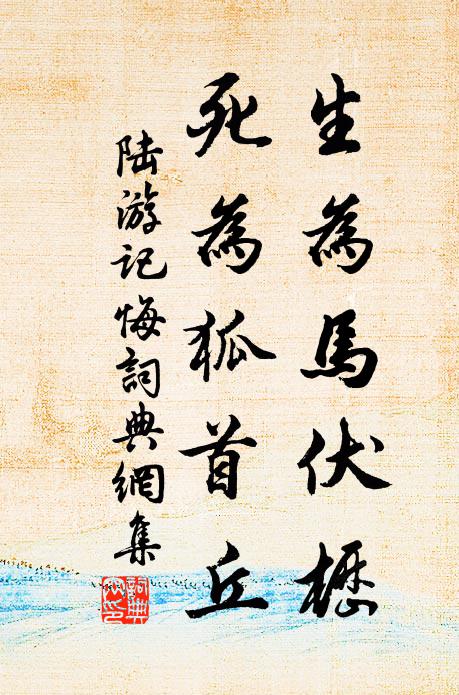 生為馬伏櫪
死為狐首丘
陆游记悔詞典網集
詞典